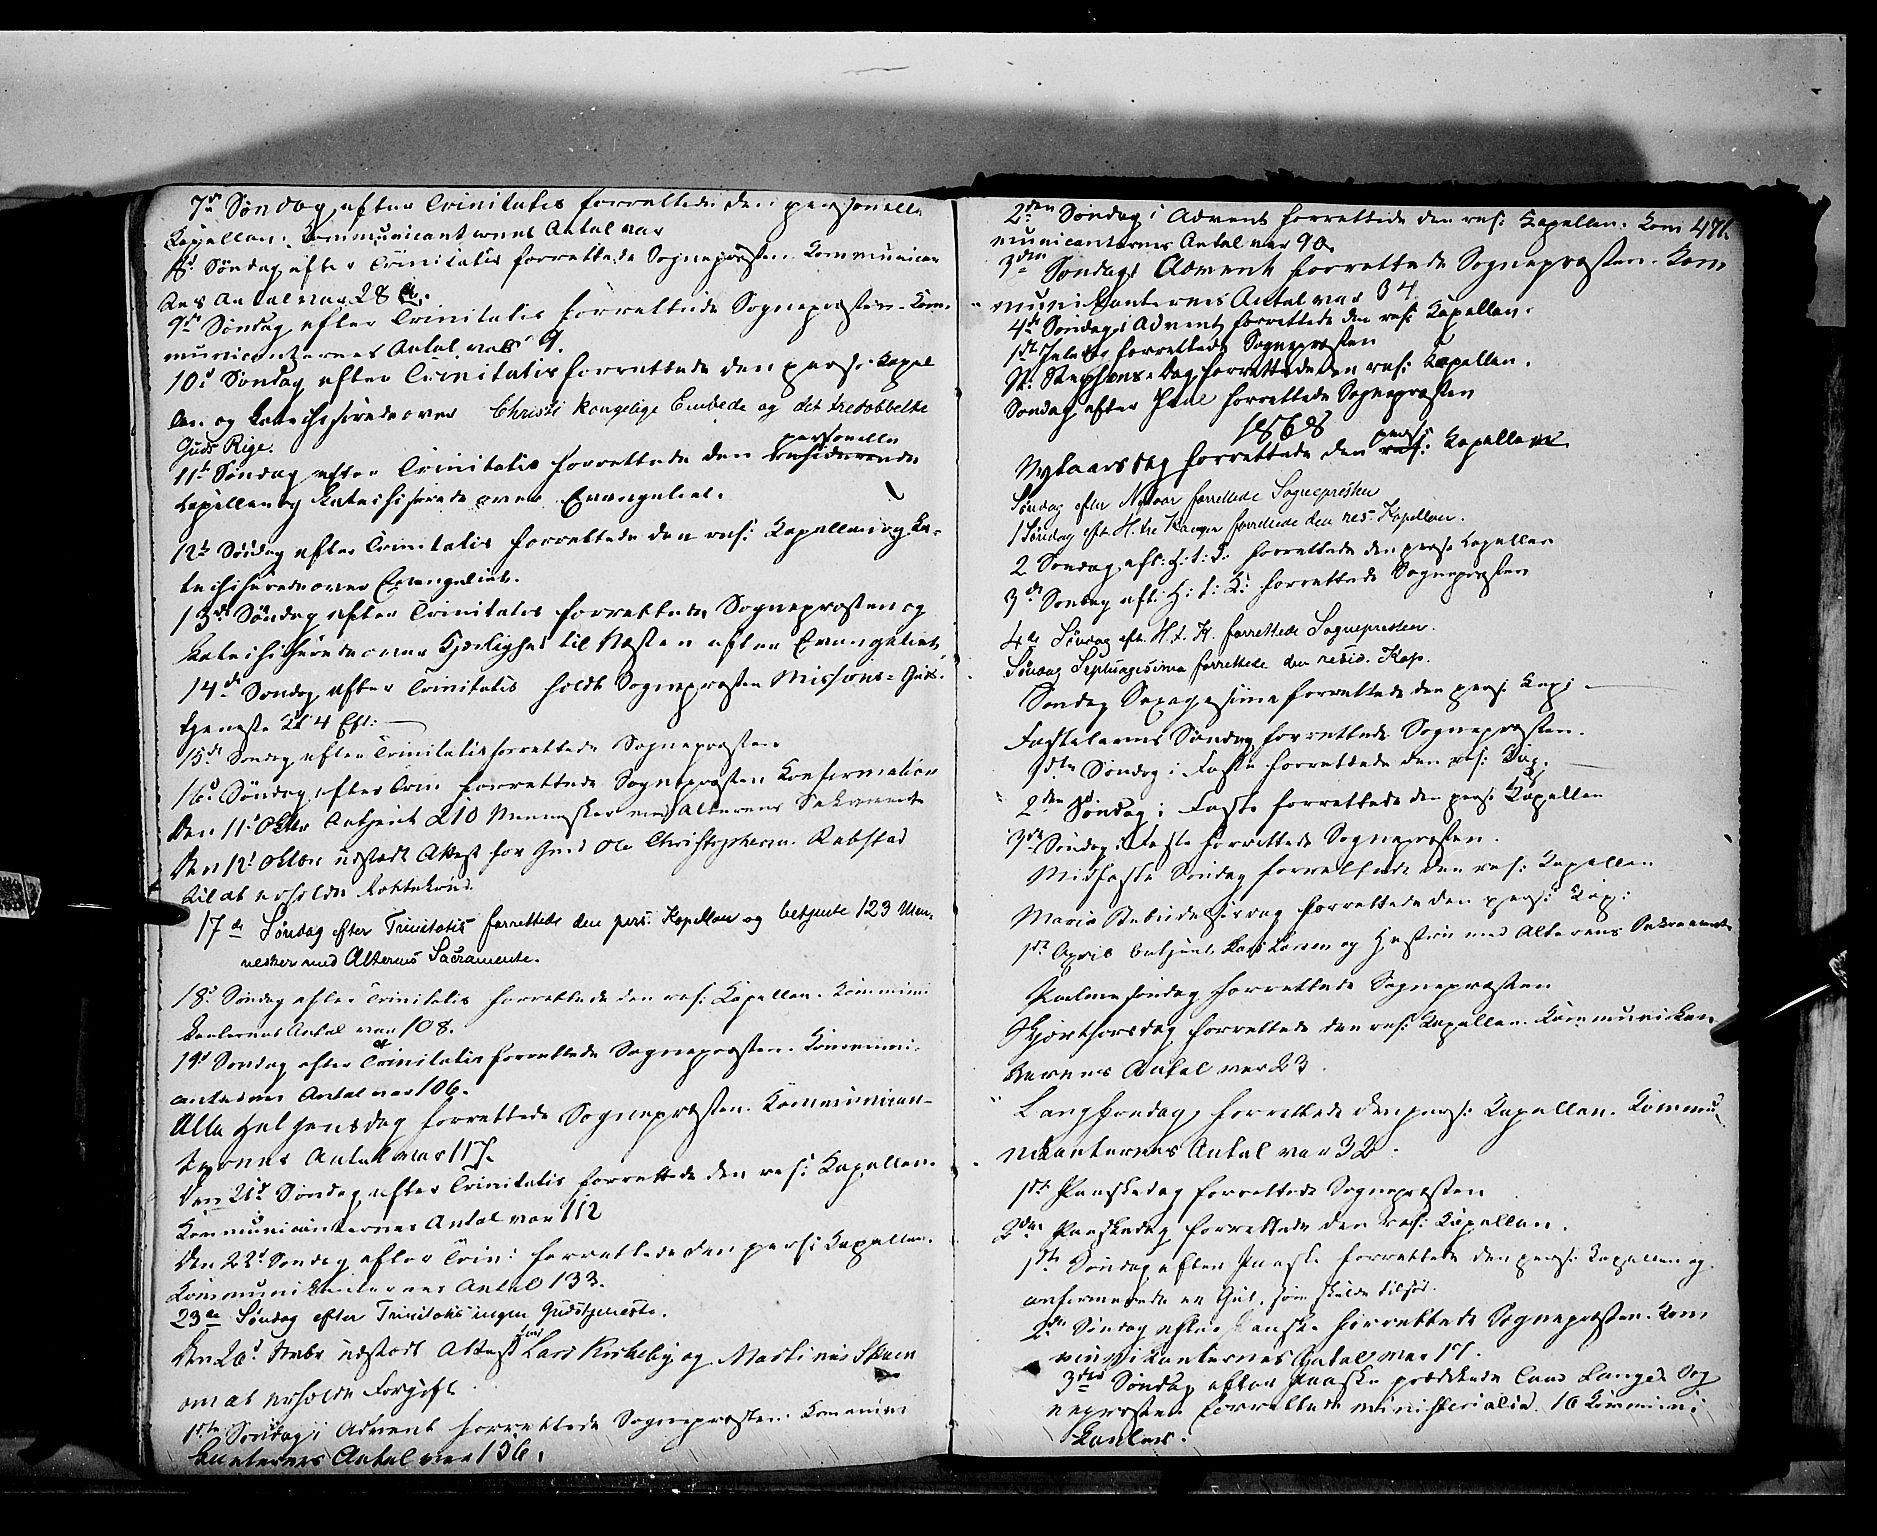 7de Søndag efter Trinitatis forrettede den personelle
Kapellan. Kommunicanternes Antal var
8d Søndag efter Trinitatis forrettede Sognepræsten. Kommunican
tes Antal var 28
9de Søndag efter Trinitatis forrettede Sognepræsten. Kom-
municanternes Antal var 9.
10d Søndag efter Trinitatis forrettede den pers: Kapel
lan og katechiserede over Christi kongelige Embede og det tredobbelte
Guds Rige.
11te Søndag efter Trinitatis forrettede den personelle residerende
Kapellan og katechiserede over Evangeliet.
12te Søndag efter Trinitatis forrettede den res: Kapellan og ka-
techiserede over Evangeliet.
13de Søndag efter Trinitatis forrettede Sognepræsten og
katechiserede over Kjærlighed til Næsten efter Evangeliet
14de Søndag efter Trinitatis holdt Sognepræsten Missions-Guds-
tjeneste Kl 4 Eft:
15de Søndag efter Trinitatis forrettede Sognepræsten
16d Søndag efter Trin forrettede Sognepræsten Konfirmation
Den 11t Oktbr betjent 210 Mennesker med Alterens Sakramente
Den 12t Oktbr udstedt Attest for Ole Christophersen Rabstad
til at erholde Rottekrud.
17de Søndag efter Trinitatis forrettede den pers. Kapellan og betjente 123 Men-
nesker med Alterens Sacramente.
18d Søndag efter Trinitatis forrettede den res: Kapellan. Kommuni
kanternes Antal var 108.
19d Søndag efter Trinitatis forrettede Sognepræsten. Kommuni-
anternes Antal var 106.
Alle Helgensdag forrettede Sognepræsten. Kommunican-
ternes Antal var 117.
Den 21d Søndag efter Trinitatis forrettede den res: Kapellan.
Kommunicanternes Antal var 112
Den 22d Søndag efter Trin: forrettede den pers: Kapellan.
Kommunikanternes Antal 133.
23de Søndag efter Trinitatis ingen Gudstjeneste.
Den 20d udstedt Attest for Lars Kirkeby og Martinus
om at erholde Forgift
1ste Søndag i Advent forrettede Sognepræsten. Kommuni
kanternes Antal var 136.
2den Søndag i Advent forrettede den res: Kapellan. Kom 471.
municanternes Antal var 90.
3den Søndag i Advent forrettede Sognepræsten. Kom
munikanternes Antal var 34
4de Søndag i Advent forrettede den res: Kapellan.
1ste Juledag forrettede Sognepræsten
St: Stephens-Dag forrettede den res: Kapellan.
Søndag efter Juul forrettede Sognepræsten
1868
Nytaarsdag forrettede den pers: res: Kapellan
Søndag efter Nytaar forrettede Sognepresten
1 Søndag eft. H. tre Konger forrettede den res. Kapellan.
2 Søndag eft: H: t: K: forrettede den pers: Kapellan
3de Søndag eft: H: t: K: forrettede Sognepræsten
4de Søndag eft. H. t. K. forrettede Sognepresten.
Søndag Septuagesima forrettede den resid. Kap.
Søndag Sexagesima forrettede den pers: Kap:
Fastelavns Søndag forrettede Sognepræsten.
1ste Søndag i Faste forrettede den res: Kap.
2den Søndag i Faste forrettede den pers: Kapellan
3de Søndag i Faste forrettede Sognepræsten.
Midfaste Søndag forrettede den res: Kapellan
Mariæ Bebudelsesdag forrettede den pers: Kap:
1ste April betjent Lars Larsen og Hustru med Alterens Sakramente
Palmesøndag forrettede Sognepræsten
Skjærthorsdag forrettede den res: Kapellan. Kommunikan
ternes Antal var 23.
Langfredag forrettede den pers: Kapellan. Kommu
nikanternes Antal var 32.
1ste Paaskedag forrettede Sognepræsten
2den Paaskedag forrettede den res: Kapellan.
1ste Søndag efter Paaske forrettede den pers: Kapellan og
confirmerede en Gut, som skulde tilsøs.
2den Søndag efter Paaske forrettede Sognepræsten. Kom
munikanternes Antal var 17.
3die Søndag efter Paaske prædikede Cand Lange. Sog
nepræsten forrettede ministerialia. 16 Kommuni
kanter.